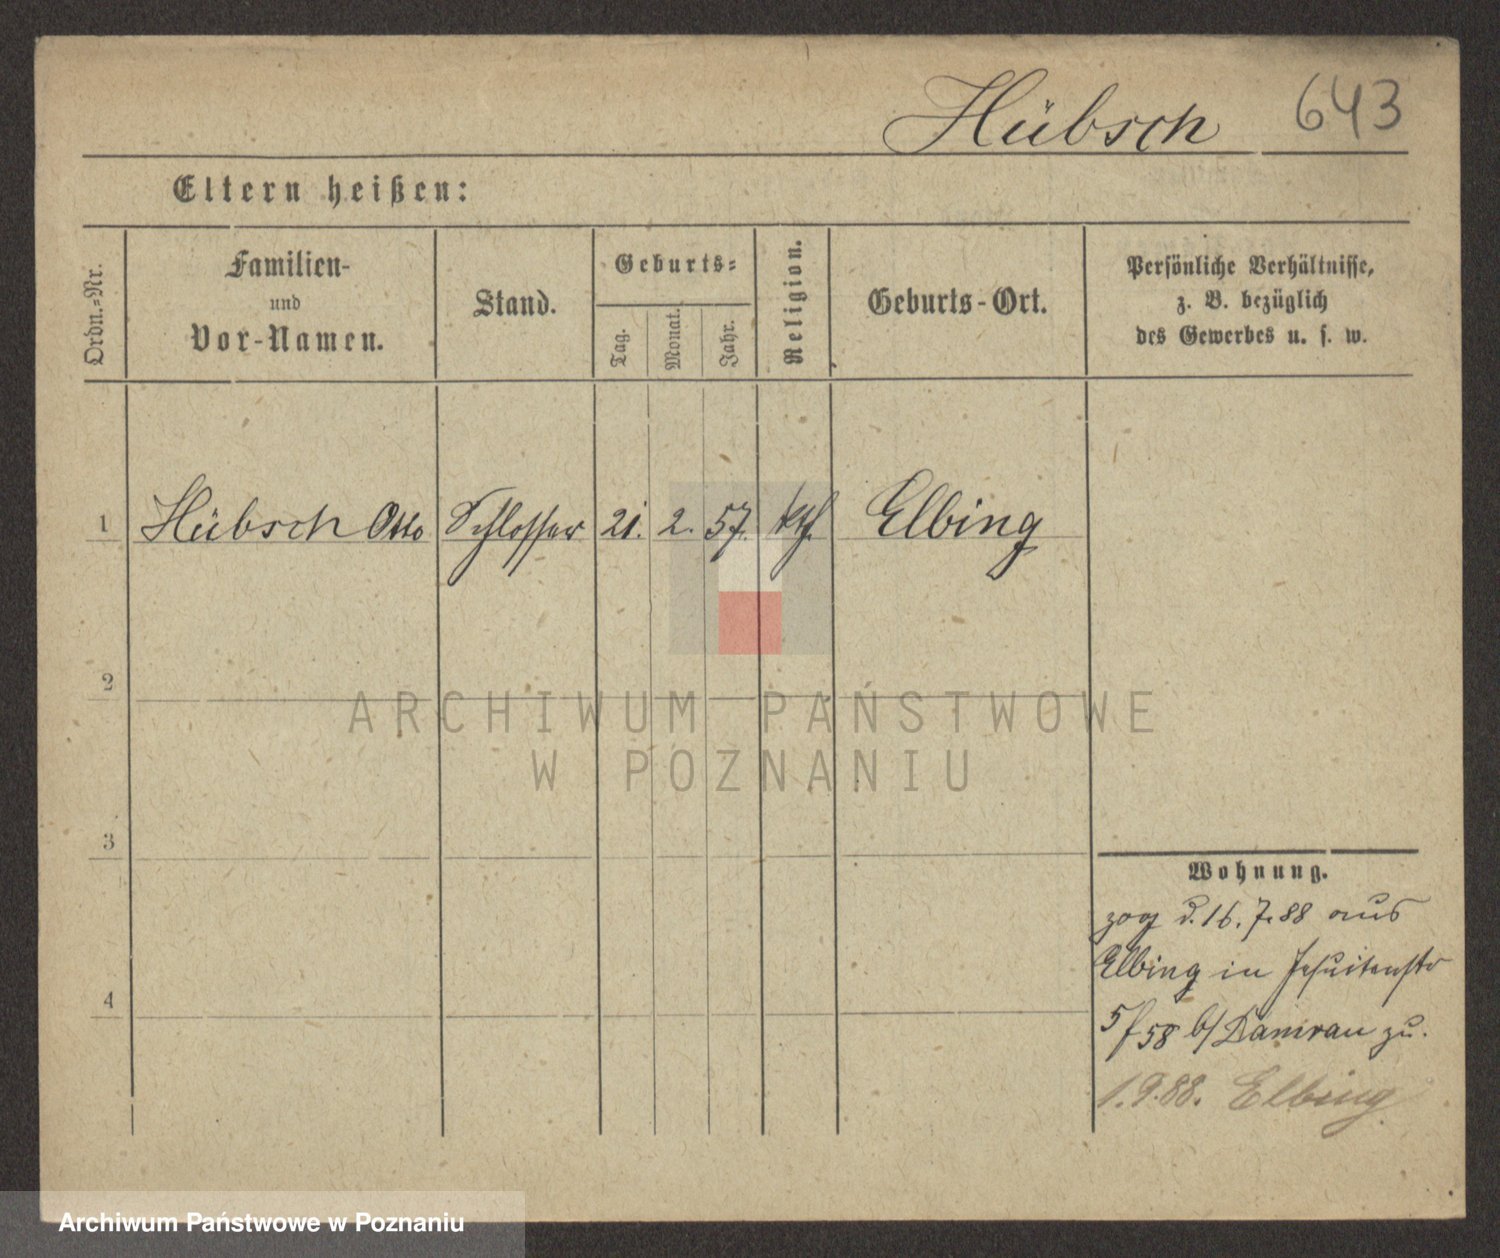 Hübsch 643
Eltern heißen:
Ordn.-Nr.
Familien-
und
Vor-Namen.
Stand.
Geburts-
Tag.
Monat.
Jahr.
Religion.
Geburts-Ort.
Persönliche Verhältnisse,
z. B. bezüglich
des Gewerbes u. s. w.
1 Hübsch Otto Schlosser 21. 2. 57. kth. Elbing
2
ARCHIWUM PAŃSTWOWE
W POZNANIU
3
Wohnung.
zog d. 16. 7. 88 aus
Elbing in Jesuitenstr
4
5/58 b/ Kamrau zu.
1.9.88. Elbing
Archiwum Państwowe w Poznaniu